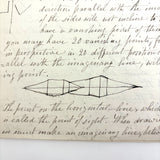 direction parallel with the im
of the sides will not incline to
have a vanishing point of them
you may have 20 vanishing points,
in perspective in 20 different position
allel with the imaginary line, will
ing point.
the point in the horizontal line, which
is called the point of sight. When drawin
must make an imaginary line, bef